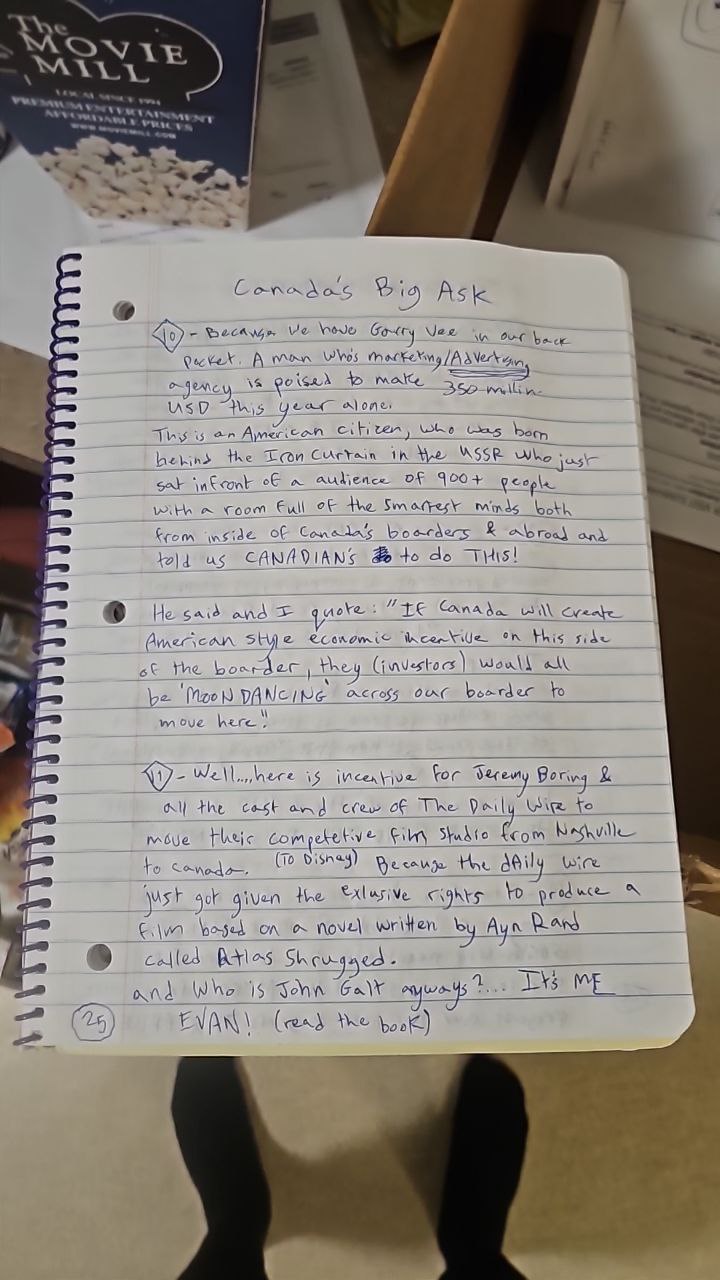 The
MOVIE
MILL
LOCAL SINCE 1994
PREMIUM ENTERTAINMENT
AFFORDABLE PRICES
WWW.MOVIEMILL.COM
Canada's Big Ask
10 - Because we have Garry Vee in our back
pocket. A man who's marketing/Advertising
agency is poised to make 350 millin
USD this year alone.
This is an American citizen, who was born
behind the Iron Curtain in the USSR who just
sat infront of a audience of 900+ people
with a room full of the smartest minds both
from inside of Canada's boarders & abroad and
told us CANADIAN'S to do THIS!
He said and I quote: "If Canada will create
American style economic incentive on this side
of the boarder, they (investors) would all
be 'MOON DANCING' across our boarder to
move here!"
11 - Well....here is incentive for Jeremy Boring &
all the cast and crew of The Daily Wire to
move their competetive film studio from Nashville
to Canada. (To Disney) Because the dAily wire
just got given the exlusive rights to produce a
film based on a novel written by Ayn Rand
called Atlas Shrugged.
and Who is John Galt ayways?... It's ME
EVAN! (read the book)
25